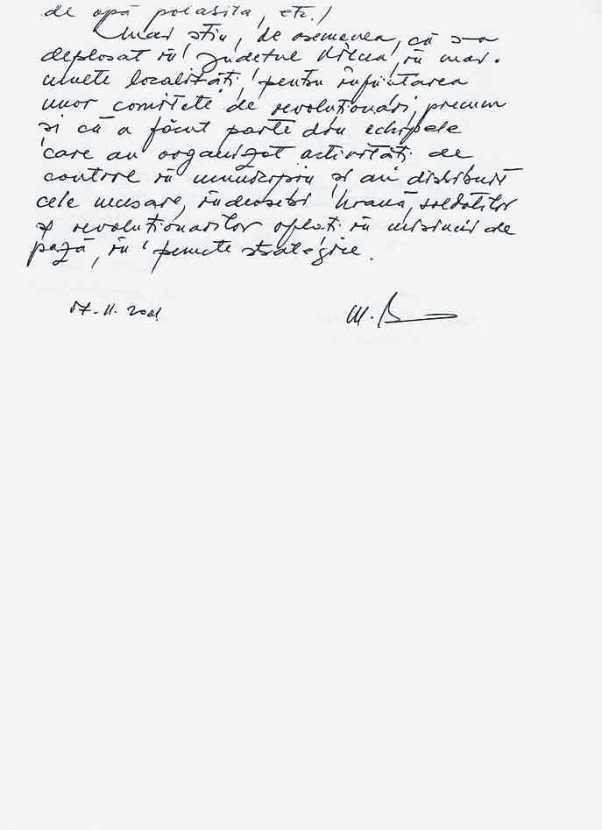 de apă potabilă, etc.)
Mai știu, de asemenea, că s-a
deplasat în județul Vâlcea, în mai
multe localități, pentru înființarea
unor comitete de revoluționari, precum
și că a făcut parte din echipele
care au organizat activități de
control în municipiu și au distribuit
cele necesare, îndeosebi hrană, soldaților
și revoluționarilor aflați în misiuni de
pază, în puncte strategice.
17.11.2001